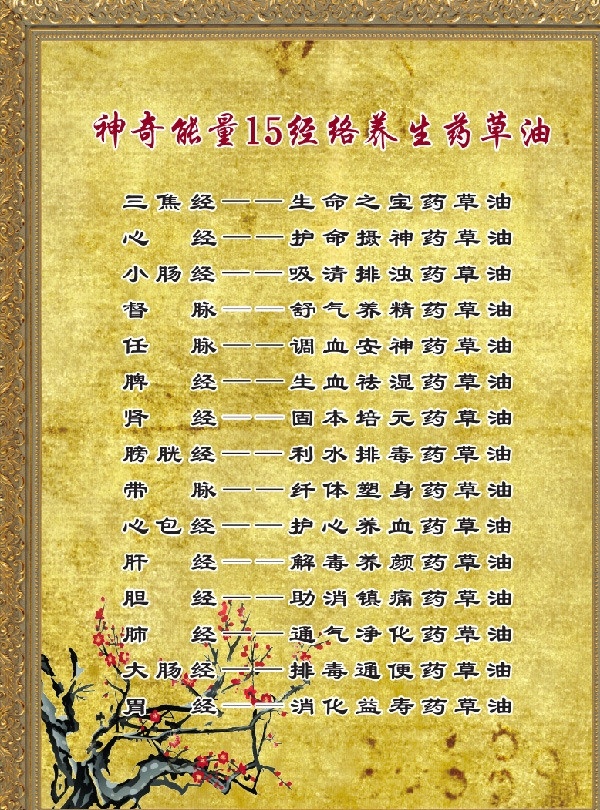 神奇能量15经络养生药草油
三焦经——生命之宝药草油
心经——护命摄神药草油
小肠经——吸清排浊药草油
督脉——舒气养精药草油
任脉——调血安神药草油
脾经——生血祛湿药草油
肾经——固本培元药草油
膀胱经——利水排毒药草油
带脉——纤体塑身药草油
心包经——护心养血药草油
肝经——解毒养颜药草油
胆经——助消镇痛药草油
肺经——通气净化药草油
大肠经——排毒通便药草油
胃经——消化益寿药草油